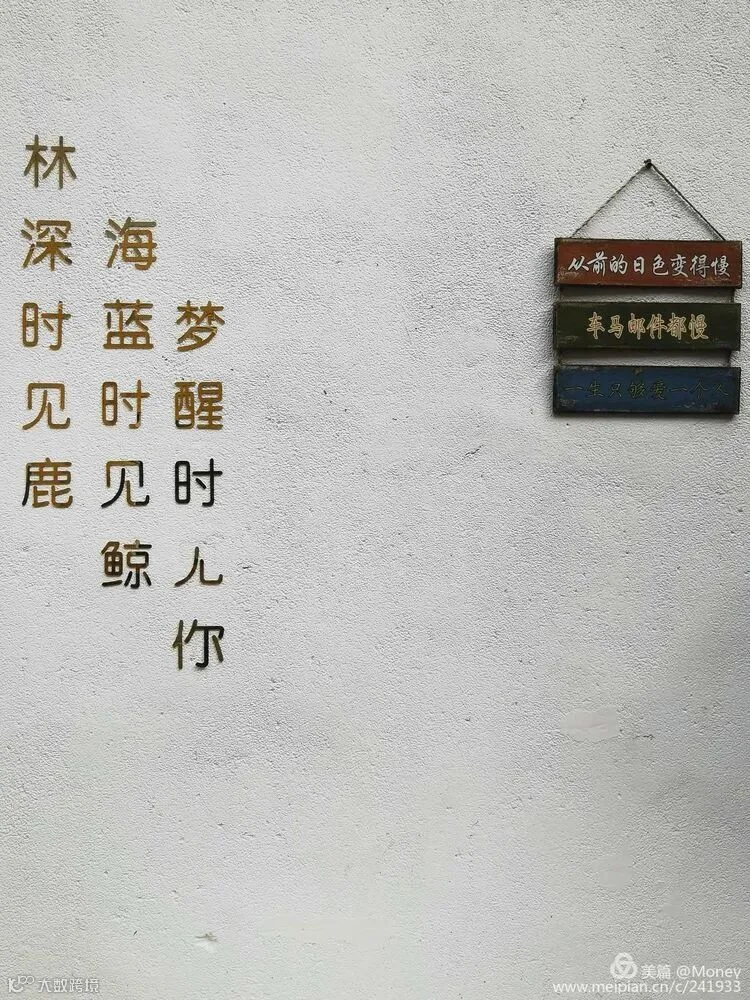 林深时见鹿
海蓝时见鲸
梦醒时儿你
从前的日色变得慢
车马邮件都慢
一生只够爱一个人
美篇 @Money
www.meipian.cn/c/241933
大数跨境